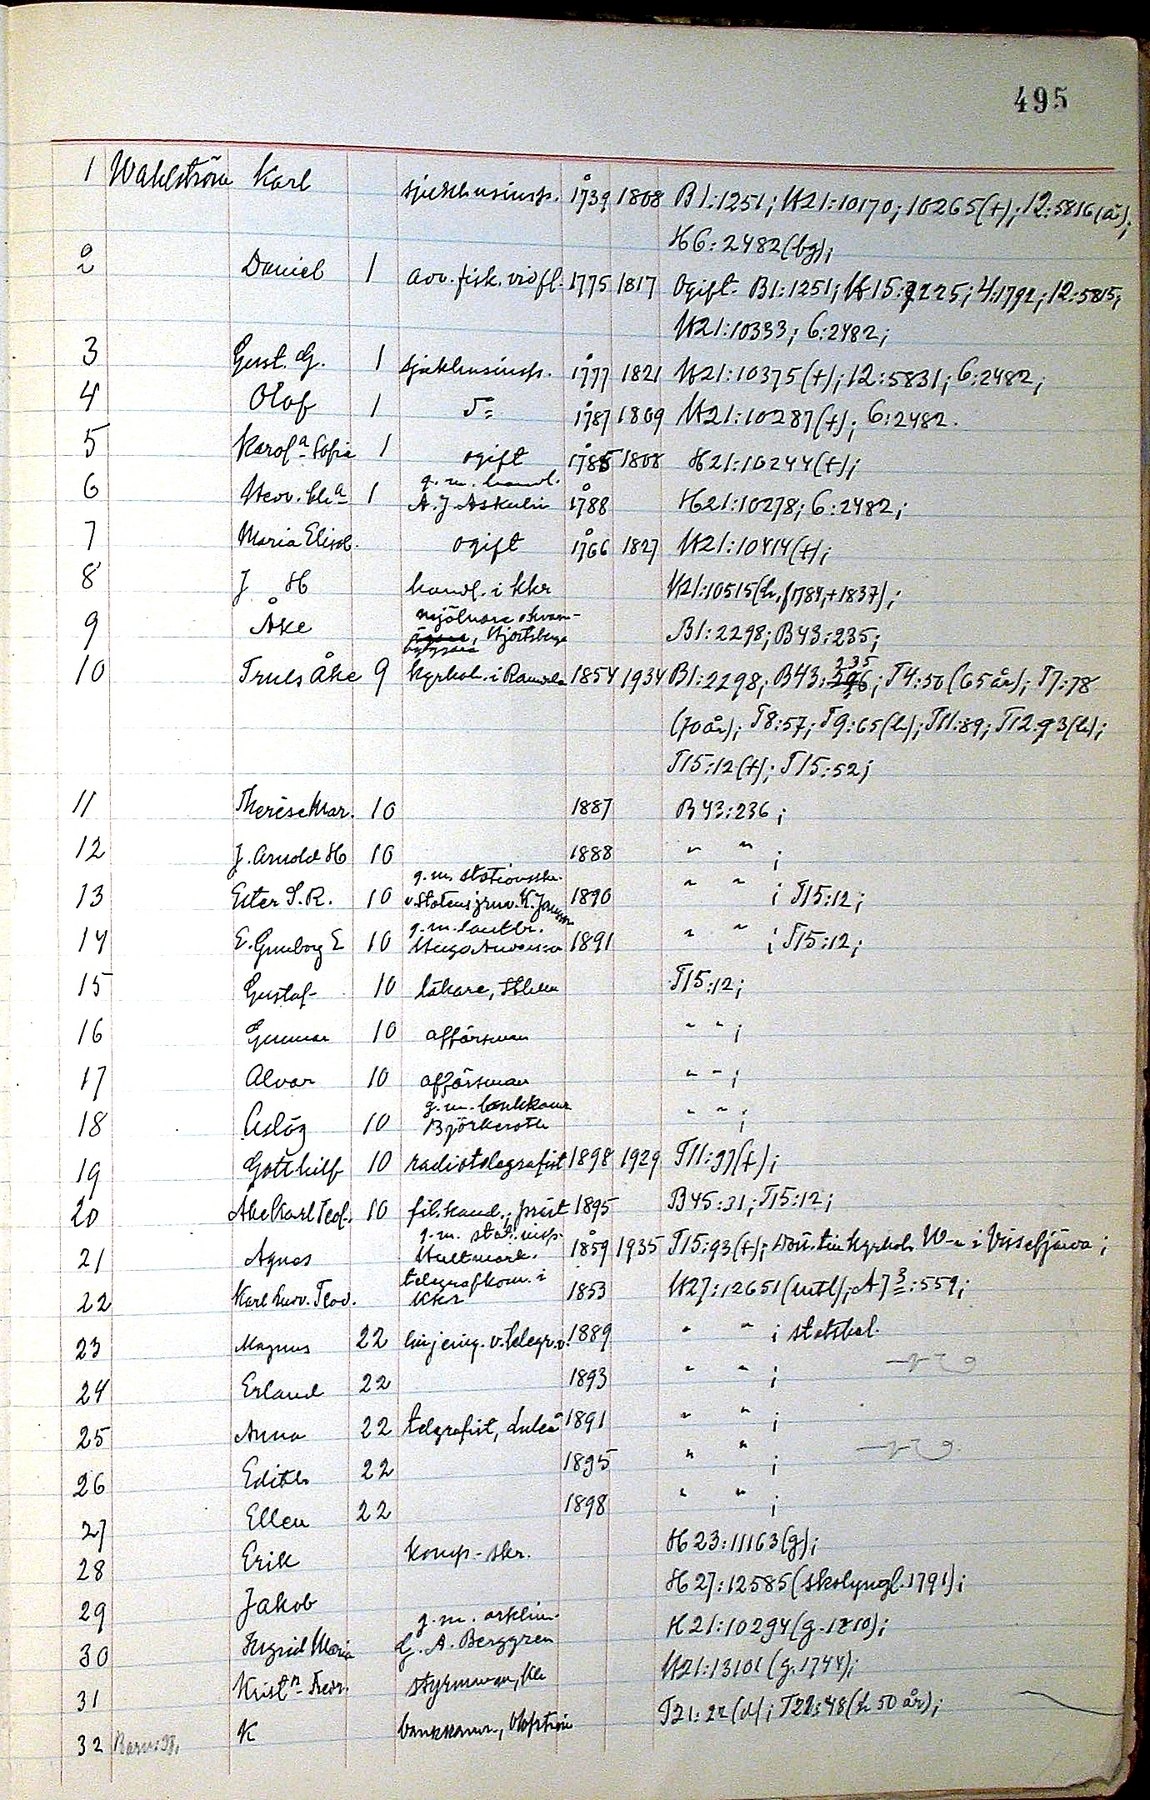 495
1 Wahlström Karl sjukhusinsp. 1739 1808 B1:1251; H21:10170; 10265(+); 12:5816(å);
H6:2482(bg);
2 Daniel 1 adv. fisk. vid fl. 1775 1817 Ogift. B1:1251; H15:9225; 4:1792; 12:5815;
H21:10333; 6:2482;
3 Gust. G. 1 sjukhusinsp. 1777 1821 H21:10375(+); 12:5831; 6:2482;
4 Olof 1 1787 1809 H21:10287(+); 6:2482.
5 Karolᵃ Sofia 1 ogift 1785 1808 H21:10244(+);
g. m. handl.
6 1 A. J. Askelin 1788 H21:10278; 6:2482;
7 Maria Elisab. ogift 1766 1827 H21:10414(+);
8 J H handl. i Kkr H21:10515(h. f 1784, +1837);
mjölnare o kvarn-
9 Åke ägare, Hjortsberga B1:2298; B43:235;
235
10 Truls Åke 9 kyrkoh. i Ramdala 1854 1934 B1:2298; B43:296; T4:50 (65 år); T7:78
(70 år); T8:57; T9:65(h); T11:89; T12:93(h);
T15:12(+); T15:52;
11 Therése Mar. 10 1887 B43:236;
12 J. Arnold H 10 1888 " " ;
g. m. stationsskr.
13 Ester S. R. 10 v. Statens jrnv. K. Jonsson 1890 " " ; T15:12;
g. m. lantbr.
14 E. Gunborg E 10 Hugo Andersson 1891 " " ; T15:12;
15 Gustaf 10 läkare, T15:12;
16 Gunnar 10 affärsman " " ;
17 Alvar 10 affärsman " " ;
g. m. bankkamr
18 Aslög 10 Björkeroth " " ;
19 Gotthilf 10 radiotelegrafist 1898 1929 T11:97(+);
20 Åke Karl Teof. 10 fil. kand.; präst 1895 B45:31; T15:12;
g. m. stat. insp.
21 Agnes Hultmark. 1859 1935 T15:93(+); kyrkoh. W-m i Vissefjärda;
telegrafkom. i
22 Karl Ludv. Teod. Kkr 1853 H27:12651(utl); A7 3:559;
23 Magnus 22 linjeing. v. telegr.v. 1889 " " ; statskal.
24 Erland 22 1893 " " ;
25 Anna 22 telgrafist, Luleå 1891 " " ;
26 Edith 22 1895 " " ;
27 Ellen 22 1898 " " ;
28 Erik komp-skr. H23:11163(g);
29 Jakob H27:12585(skolyngl. 1791);
g. m. artklöjn.
30 Ingrid Maria G. A. Berggren H21:10294(g. 1810);
31 Kristⁿ Fredr. styrman, Kkr H21:13101 (g. 1744);
32 K bankkamr., Olofström T21:22(d); T22:48(h 50 år);